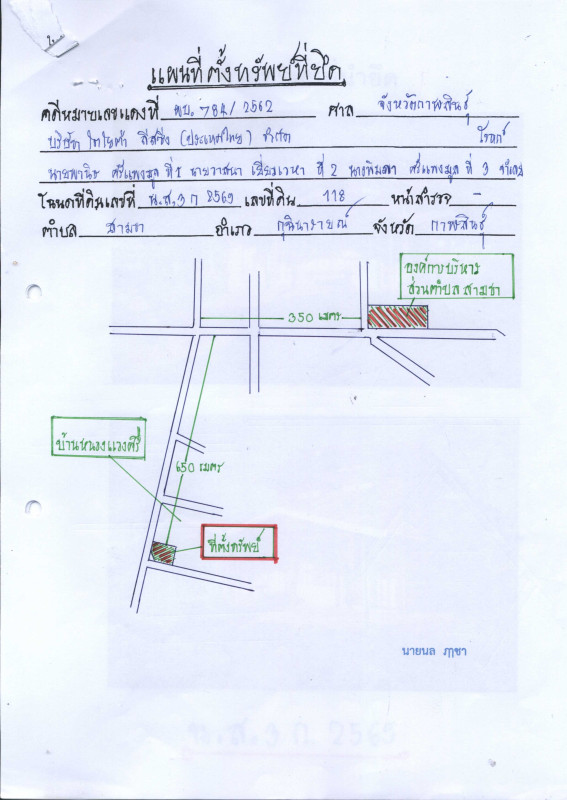 แผนที่ตั้งทรัพย์ที่ยึด
คดีหมายเลขแดงที่ ผบ. 784 / 2562 ศาล จังหวัดกาฬสินธุ์
บริษัท โตโยต้า ลีสซิ่ง (ประเทศไทย) จำกัด โจทก์
ที่ 1 นายวาสนา ที่ 2 ที่ 3 จำเลย
โฉนดที่ดินเลขที่ น.ส.3 ก 2565 เลขที่ดิน 118 หน้าสำรวจ -
ตำบล สามขา อำเภอ กุฉินารายณ์ จังหวัด กาฬสินธุ์
องค์การบริหาร
ส่วนตำบล สามขา
350 เมตร
บ้านหนองแวงศรี
650 เมตร
ที่ตั้งทรัพย์
นายนล ภูขา
น.ส.3 ก 2565